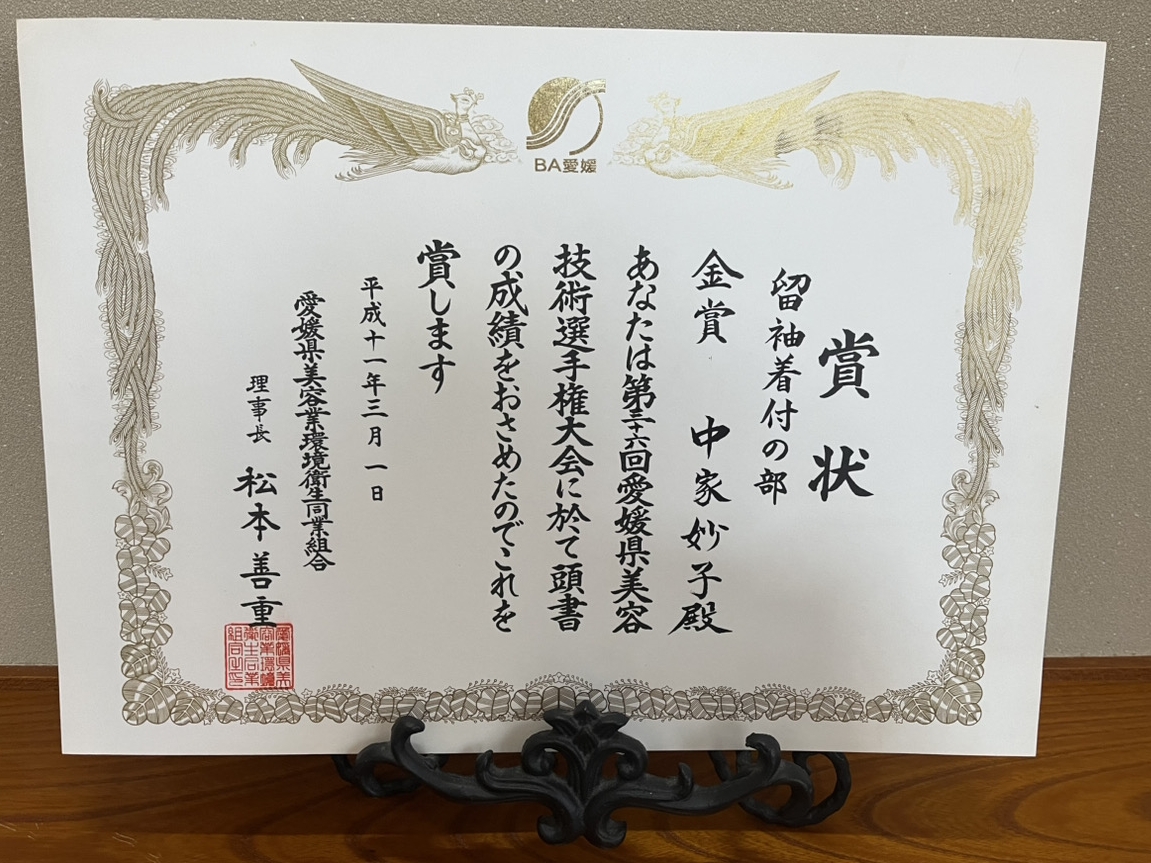 BA愛媛
賞状
留袖着付の部
金賞 中家妙子殿
あなたは第三十六回愛媛県美容
技術選手権大会に於て頭書
の成績をおさめたのでこれを
賞します
平成十一年三月一日
愛媛県美容業環境衛生同業組合
理事長 松本善重